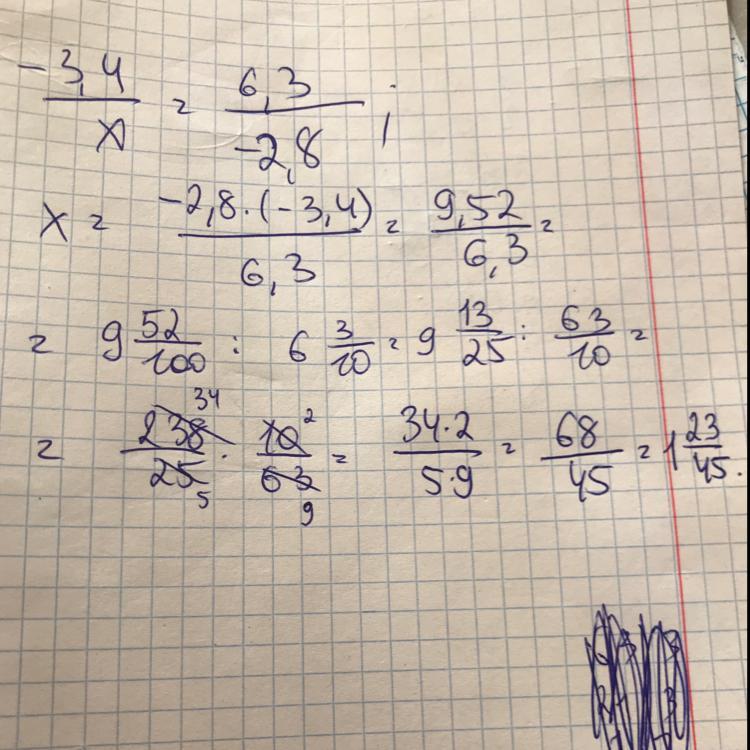 -3,4/x = 6,3/-2,8 ;
x = -2,8·(-3,4)/6,3 = 9,52/6,3 =
= 9 52/100 : 6 3/10 = 9 13/25 : 63/10 =
= 238 34/25 5 · 10 2/63 9 = 34·2/5·9 = 68/45 = 1 23/45.